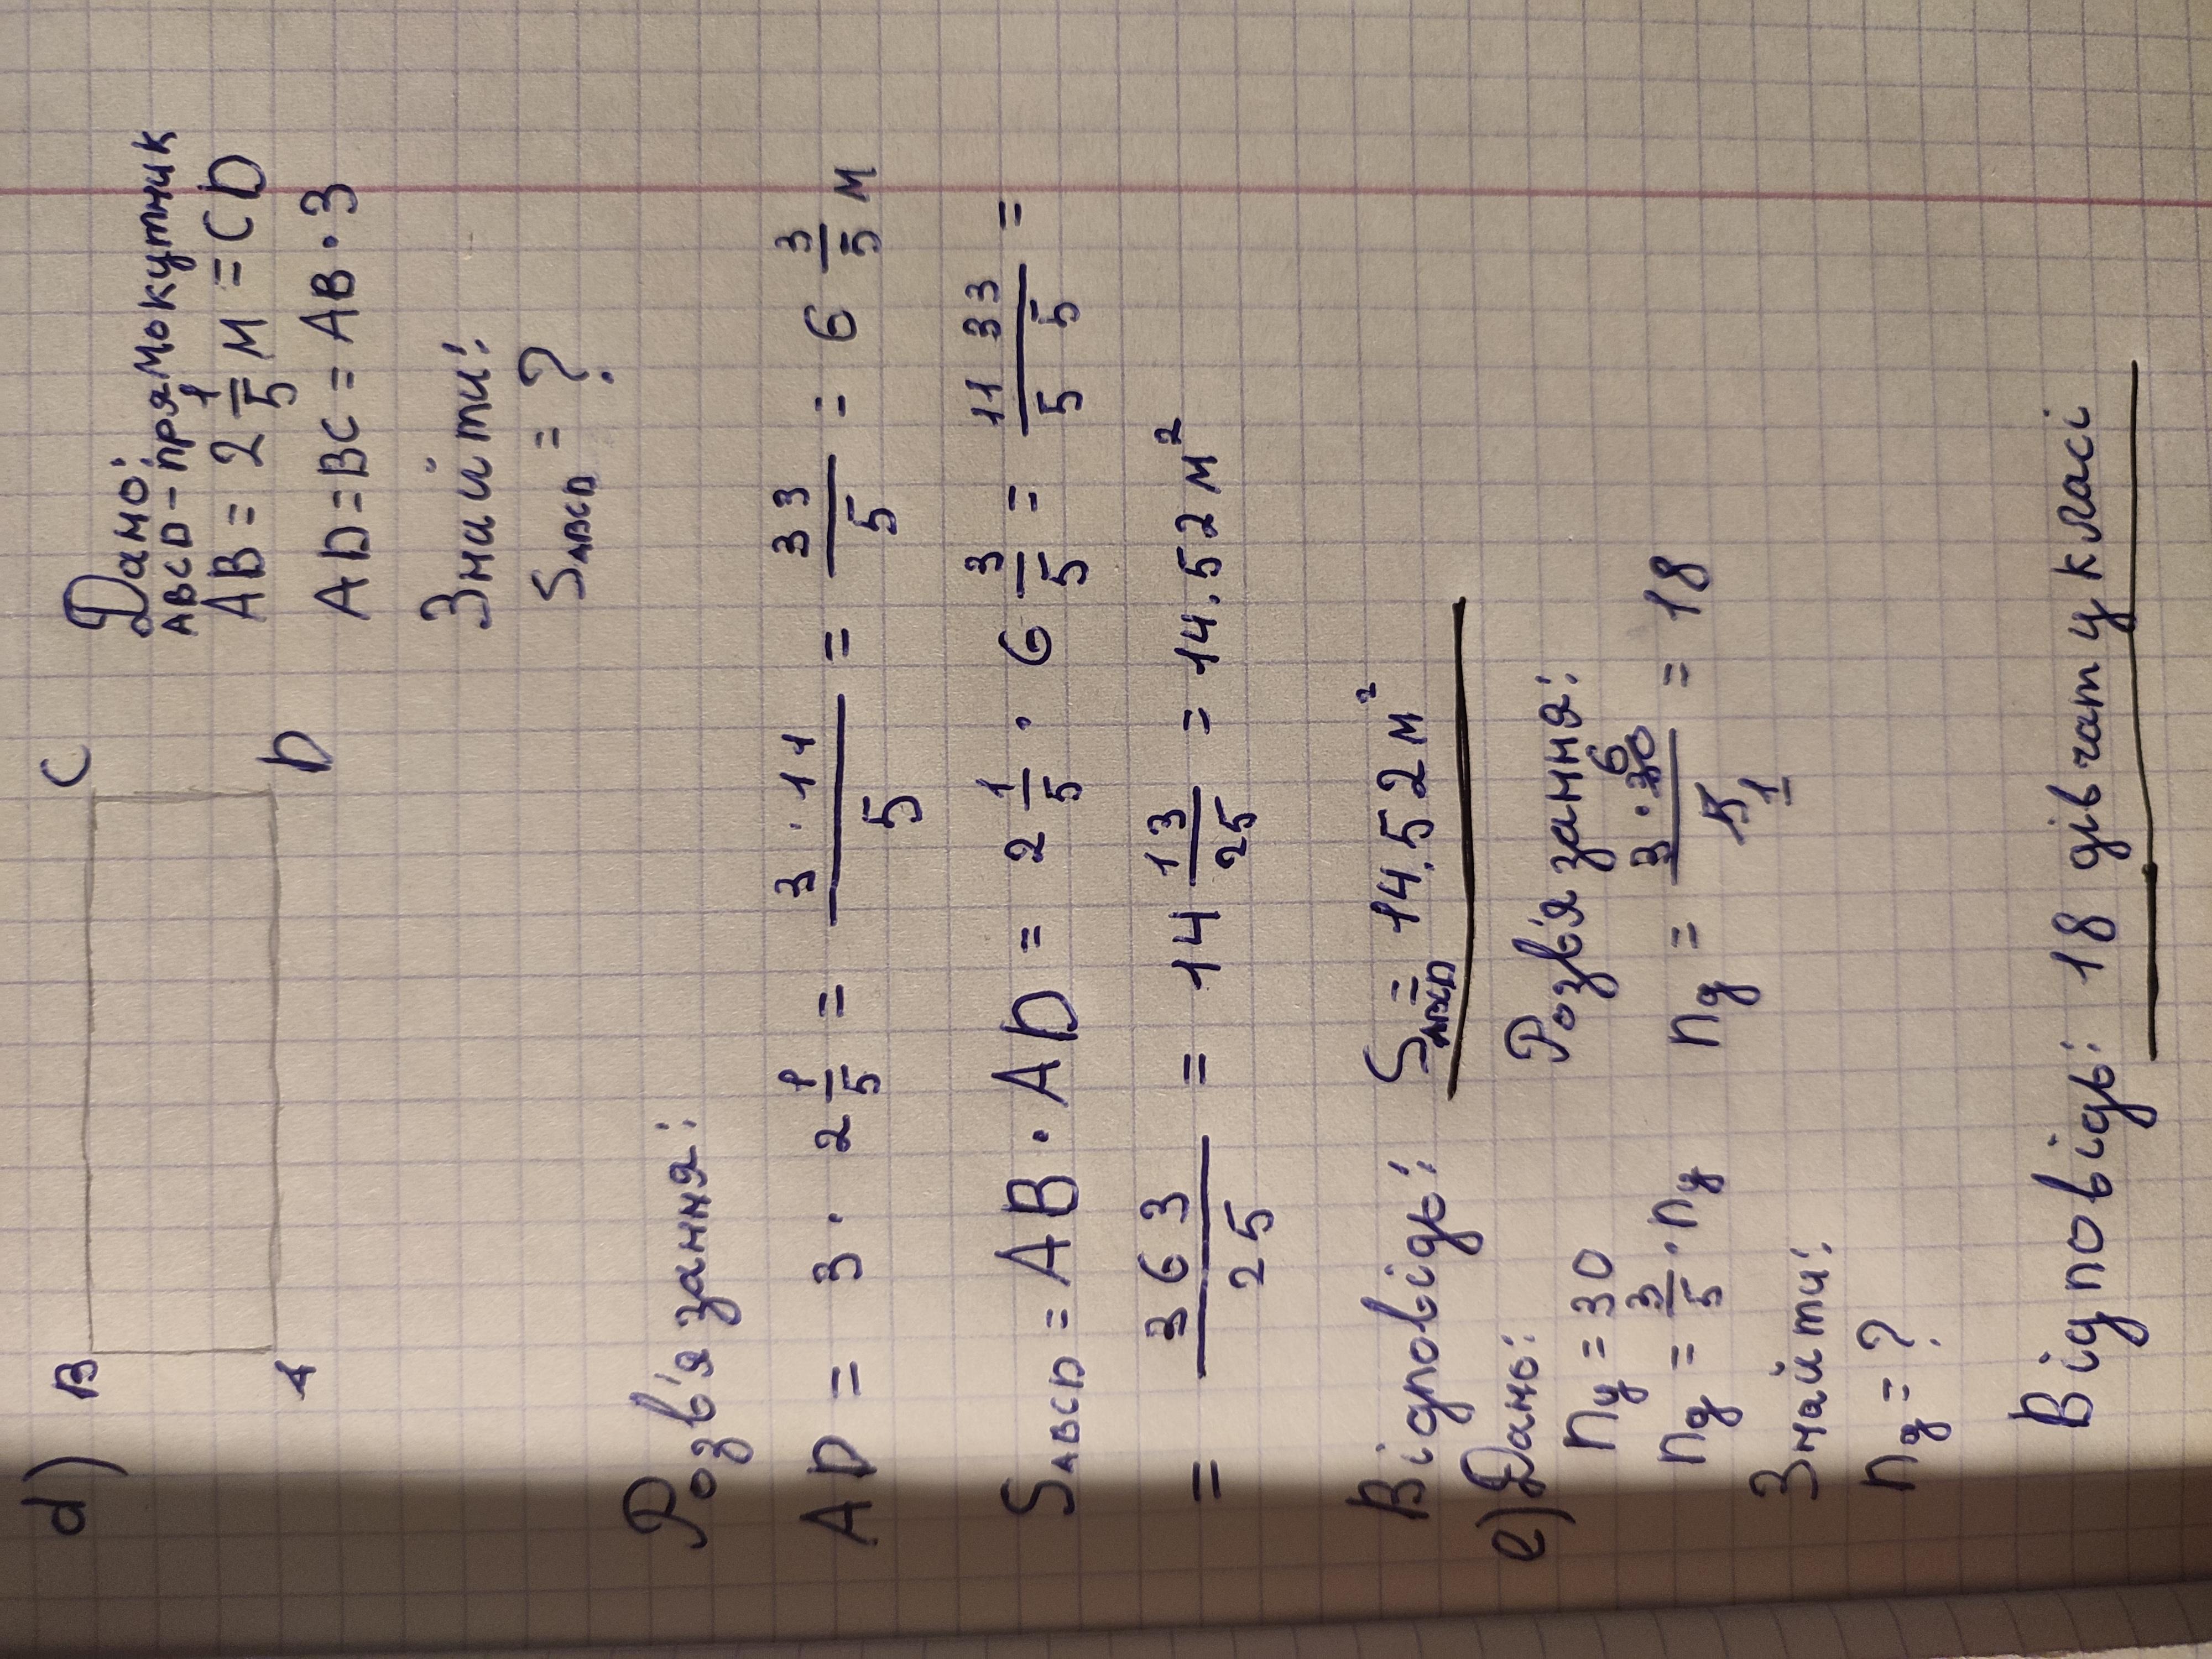 d) B C
A D
Дано:
ABCD - прямокутник
AB = 2 1/5 м = CD
AD = BC = AB · 3
Знайти:
S ABCD = ?
Розв'язання:
AD = 3 · 2 1/5 = 3 · 11/5 = 33/5 = 6 3/5 м
S ABCD = AB · AD = 2 1/5 · 6 3/5 = 11 33/5 5 =
= 363/25 = 14 13/25 = 14.52 м²
Відповідь: S ABCD = 14.52 м²
e) Дано:
nу = 30
nд = 3/5 · nу
Знайти:
nд = ?
Розв'язання:
nд = 3 · 30 6/5 1 = 18
Відповідь: 18 дівчат у класі